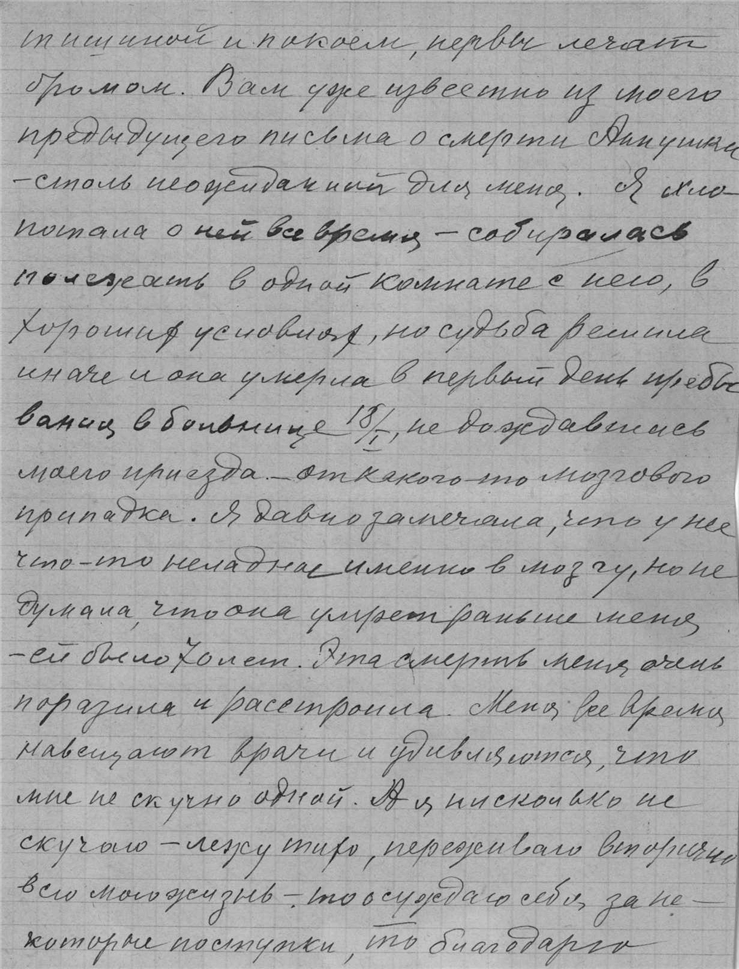 тишиной и покоем, нервы лечат
бромом. Вам уже известно из моего
предыдущего письма о смерти Аннушки
– столь неожиданной для меня. Я хло-
потала о ней все время – собиралась
полежать в одной комнате с нею, в
хороших условиях, но судьба решила
иначе и она умерла в первый день пребы
вания в больнице 18/I, не дождавшись
моего приезда – от какого-то мозгового
припадка. Я давно замечала, что у нее
что-то неладное именно в мозгу, но не
думала, что она умрет раньше меня
– ей было 70 лет. Эта смерть меня очень
поразила и расстроила. Меня все время
навещают врачи и удивляются, что
мне не скучно одной. А я нисколько не
скучаю – лежу тихо, переживаю вторично
всю мою жизнь – то осуждаю себя за не-
которые поступки, то благодарю